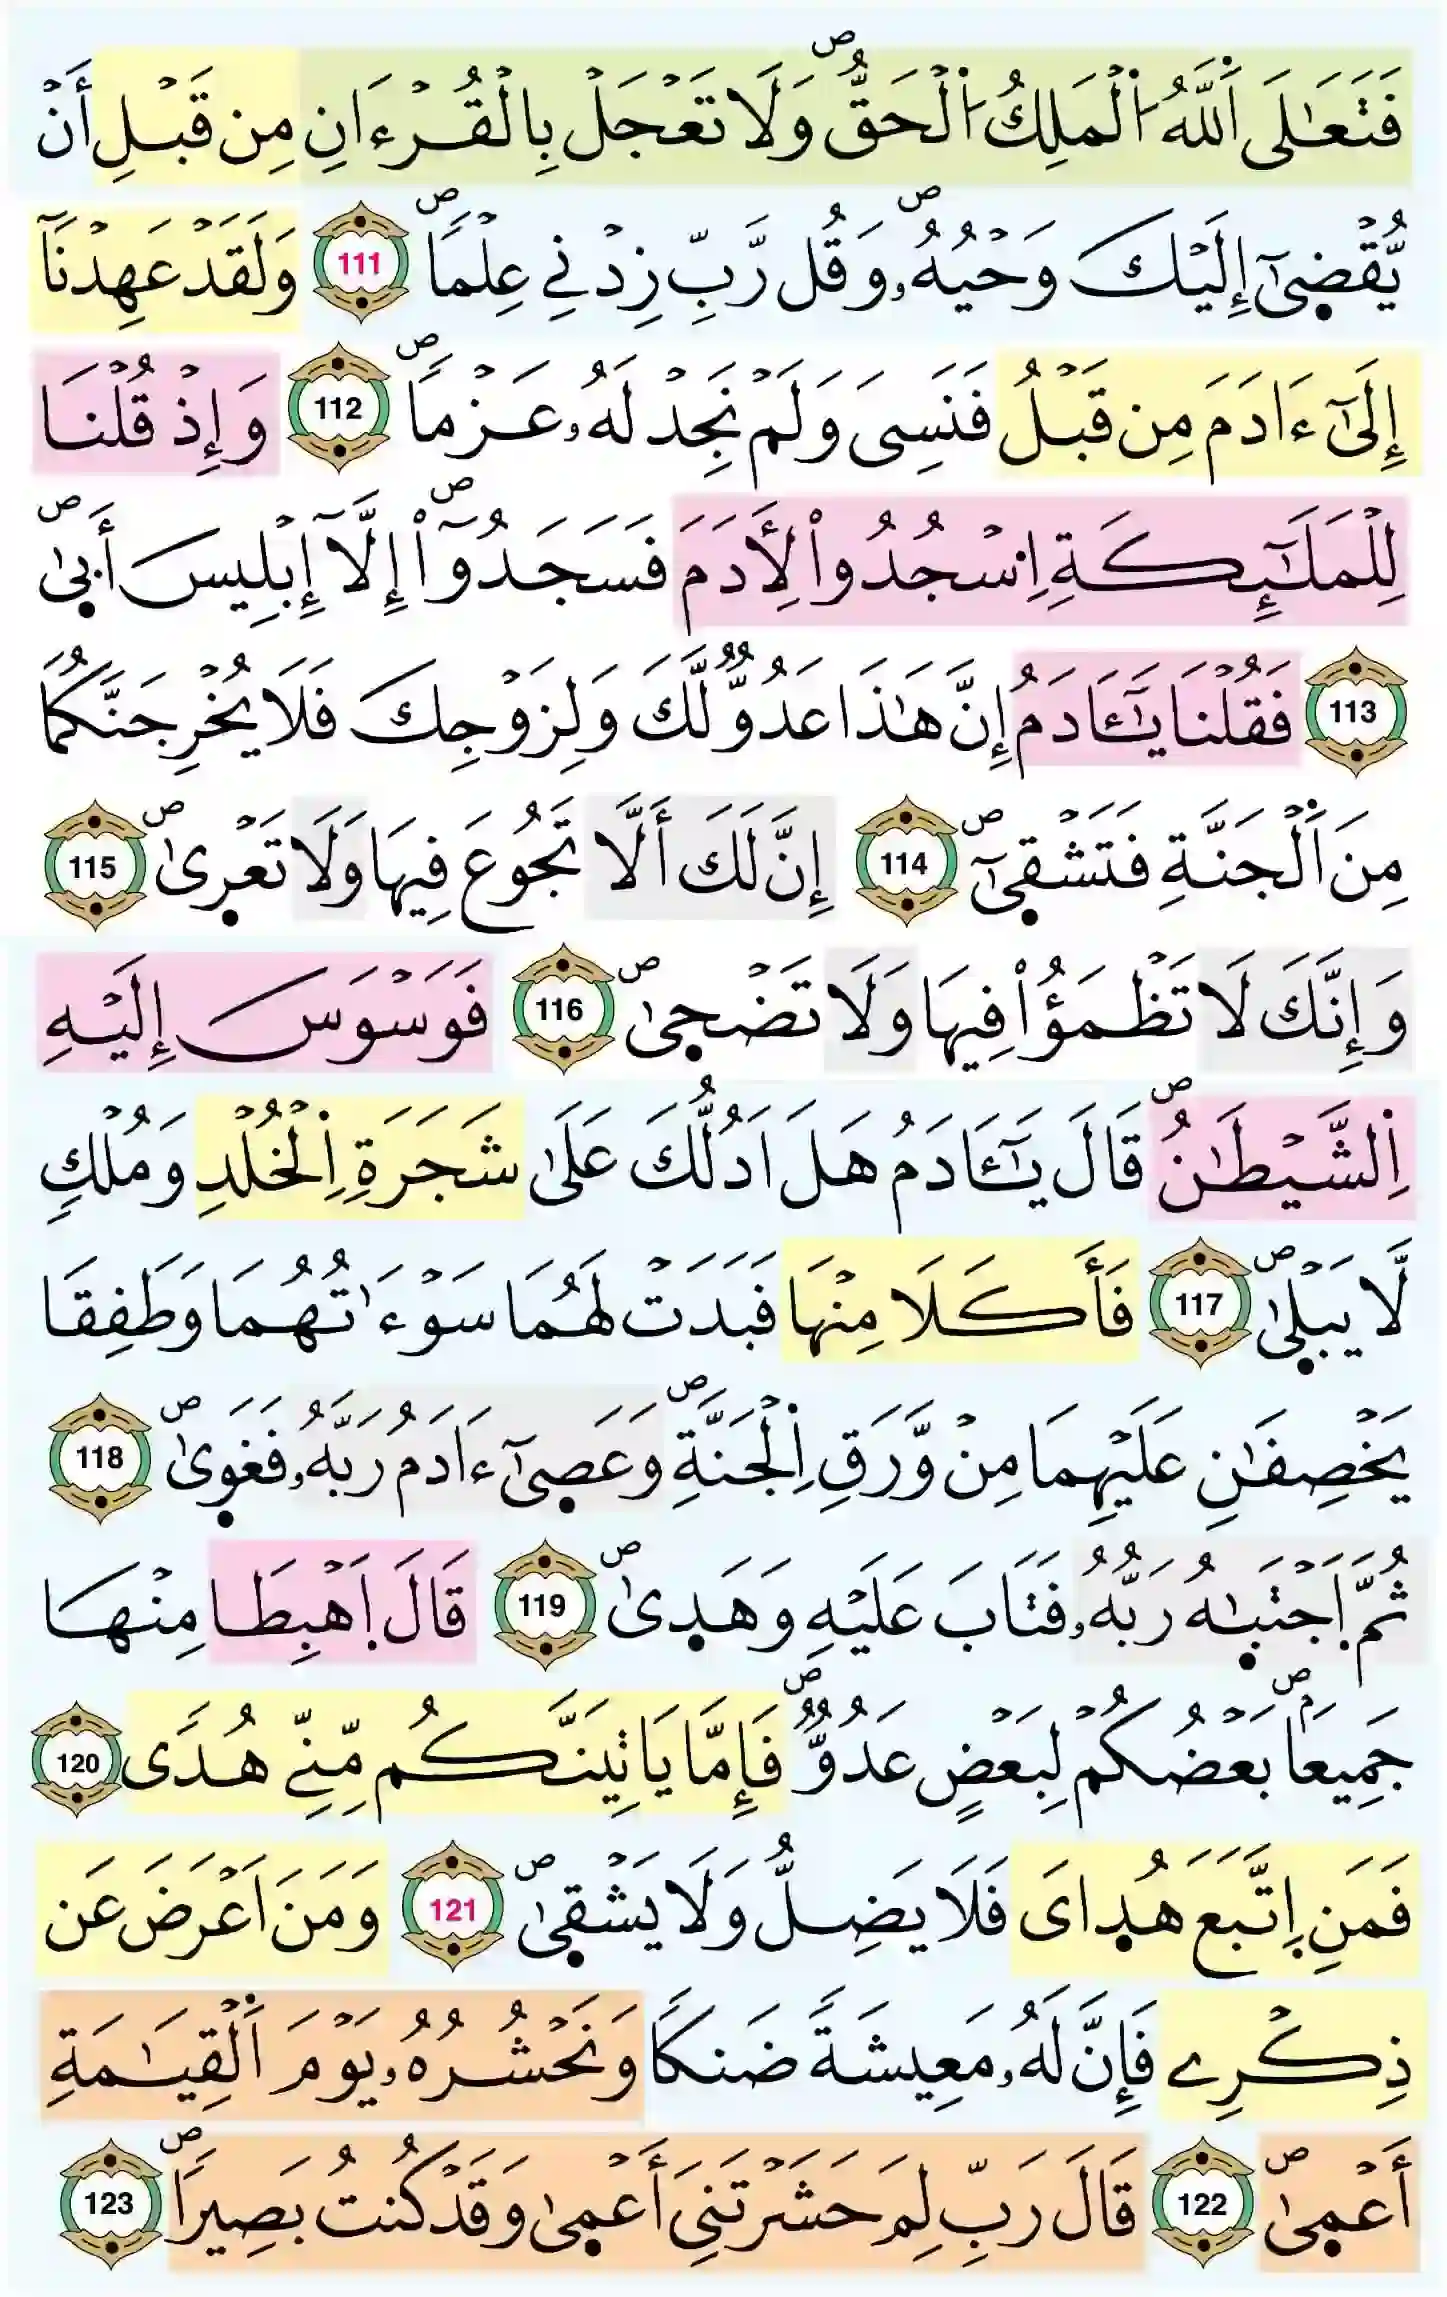 فَتَعَٰلَى اَ۬للَّهُ اُ۬لْمَلِكُ اُ۬لْحَقُّۖ وَلَا تَعْجَلْ بِالْقُرْءَانِ مِن قَبْلِ أَنْ
يُّقْض۪ىٰٓ إِلَيْكَ وَحْيُهُۥۖ وَقُل رَّبِّ زِدْنِے عِلْماٗۖ 111 وَلَقَدْ عَهِدْنَآ
إِلَىٰٓ ءَادَمَ مِن قَبْلُ فَنَسِىَ وَلَمْ نَجِدْ لَهُۥ عَزْماٗۖ 112 وَإِذْ قُلْنَا
لِلْمَلَٰٓئِكَةِ اِ۟سْجُدُواْ لِأَدَمَ فَسَجَدُوٓاْۖ إِلَّآ إِبْلِيسَ أَب۪ىٰۖ
113 فَقُلْنَا يَٰٓـَٔادَمُ إِنَّ هَٰذَا عَدُوّٞ لَّكَ وَلِزَوْجِكَ فَلَا يُخْرِجَنَّكُمَا
مِنَ اَ۬لْجَنَّةِ فَتَشْق۪ىٰٓۖ 114 إِنَّ لَكَ أَلَّا تَجُوعَ فِيهَا وَلَا تَعْر۪ىٰۖ 115
وَإِنَّكَ لَا تَظْمَؤُاْ فِيهَا وَلَا تَضْح۪ىٰۖ 116 فَوَسْوَسَ إِلَيْهِ
اِ۬لشَّيْطَٰنُۖ قَالَ يَٰٓـَٔادَمُ هَلَ اَدُلُّكَ عَلَىٰ شَجَرَةِ اِ۬لْخُلْدِ وَمُلْكٖ
لَّا يَبْل۪ىٰۖ 117 فَأَكَلَا مِنْهَا فَبَدَتْ لَهُمَا سَوْءَٰتُهُمَا وَطَفِقَا
يَخْصِفَٰنِ عَلَيْهِمَا مِنْ وَّرَقِ اِ۬لْجَنَّةِۖ وَعَص۪ىٰٓ ءَادَمُ رَبَّهُۥ فَغَو۪ىٰۖ 118
ثُمَّ اَ۪جْتَبٰ۪هُ رَبُّهُۥ فَتَابَ عَلَيْهِ وَهَد۪ىٰۖ 119 قَالَ اَ۪هْبِطَا مِنْهَا
جَمِيعاَۢۖ بَعْضُكُمْ لِبَعْضٍ عَدُوّٞۖ فَإِمَّا يَاتِيَنَّكُم مِّنِّے هُدٗى 120
فَمَنِ اِ۪تَّبَعَ هُد۪اىَ فَلَا يَضِلُّ وَلَا يَشْق۪ىٰۖ 121 وَمَنَ اَعْرَضَ عَن
ذِكْرِے فَإِنَّ لَهُۥ مَعِيشَةٗ ضَنكاٗ وَنَحْشُرُهُۥ يَوْمَ اَ۬لْقِيَٰمَةِ
أَعْم۪ىٰۖ 122 قَالَ رَبِّ لِمَ حَشَرْتَنِىَ أَعْم۪ىٰ وَقَدْ كُنتُ بَصِيراٗۖ 123